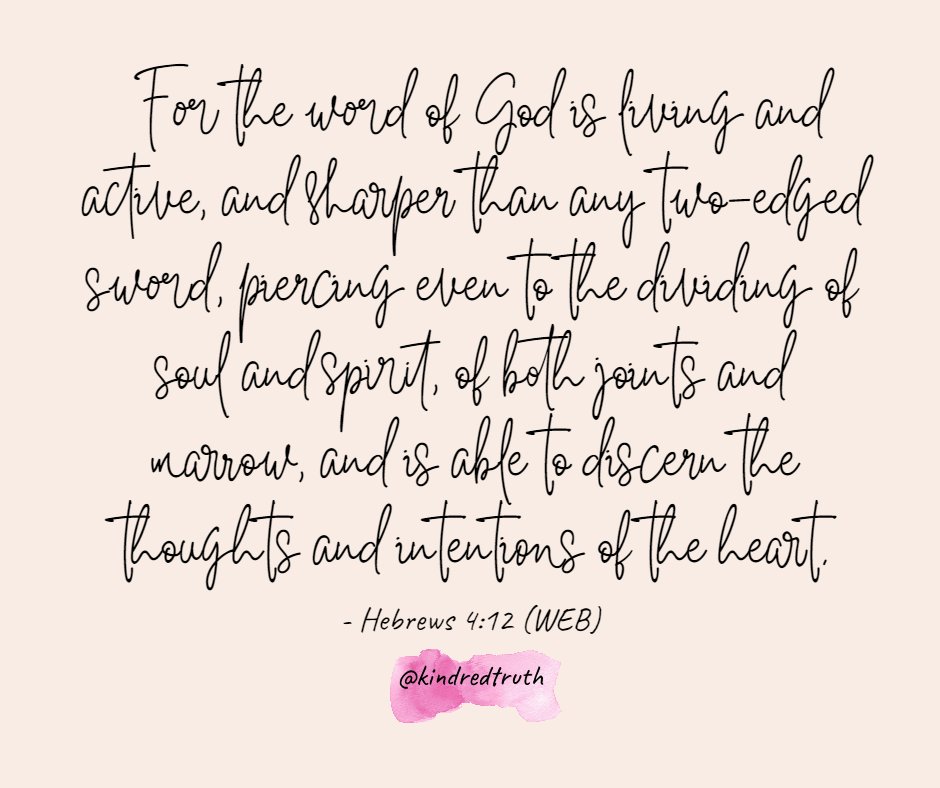 For the word of God is living and
active, and sharper than any two-edged
sword, piercing even to the dividing of
soul and spirit, of both joints and
marrow, and is able to discern the
thoughts and intentions of the heart.
- Hebrews 4:12 (WEB)
@kindredtruth